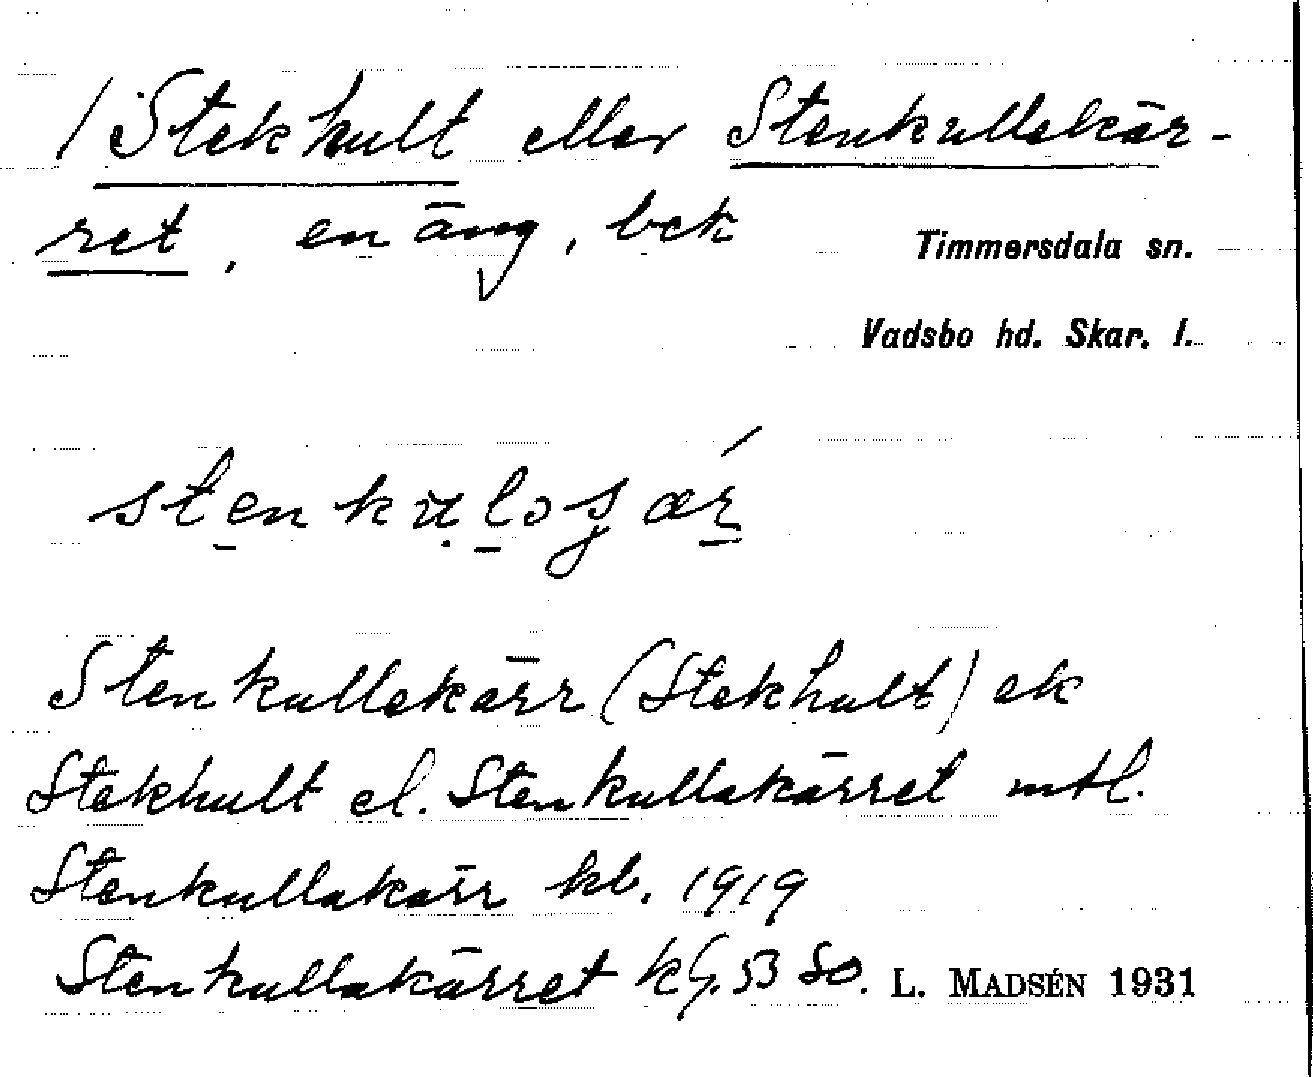 1/ Stekhult eller Stenkullekär-
ret, en äng, bek
Timmersdala sn.
Vadsbo hd. Skar. l.
Stenkullekärr (Stekhult) ek
Stekhult el. Stenkullakärret mtl.
Stenkullakärr kb. 1919
Stenkullakärret
L. MADSÉN 1931